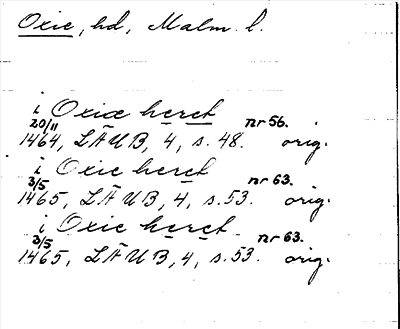 Oxie, hd, Malm. l.
i Oxiæ heret
20/11 nr 56.
1464, LÄUB, 4, s. 48. orig.
i Oxie heret
3/5 nr 63.
1465, LÄUB, 4, s. 53. orig.
i Oxie heret
3/5 nr 63.
1465, LÄUB, 4, s. 53. orig.